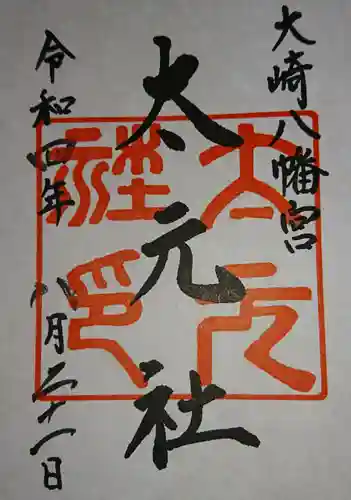 大崎八幡宮
太元社
令和四年
八月二十一日
太元社印